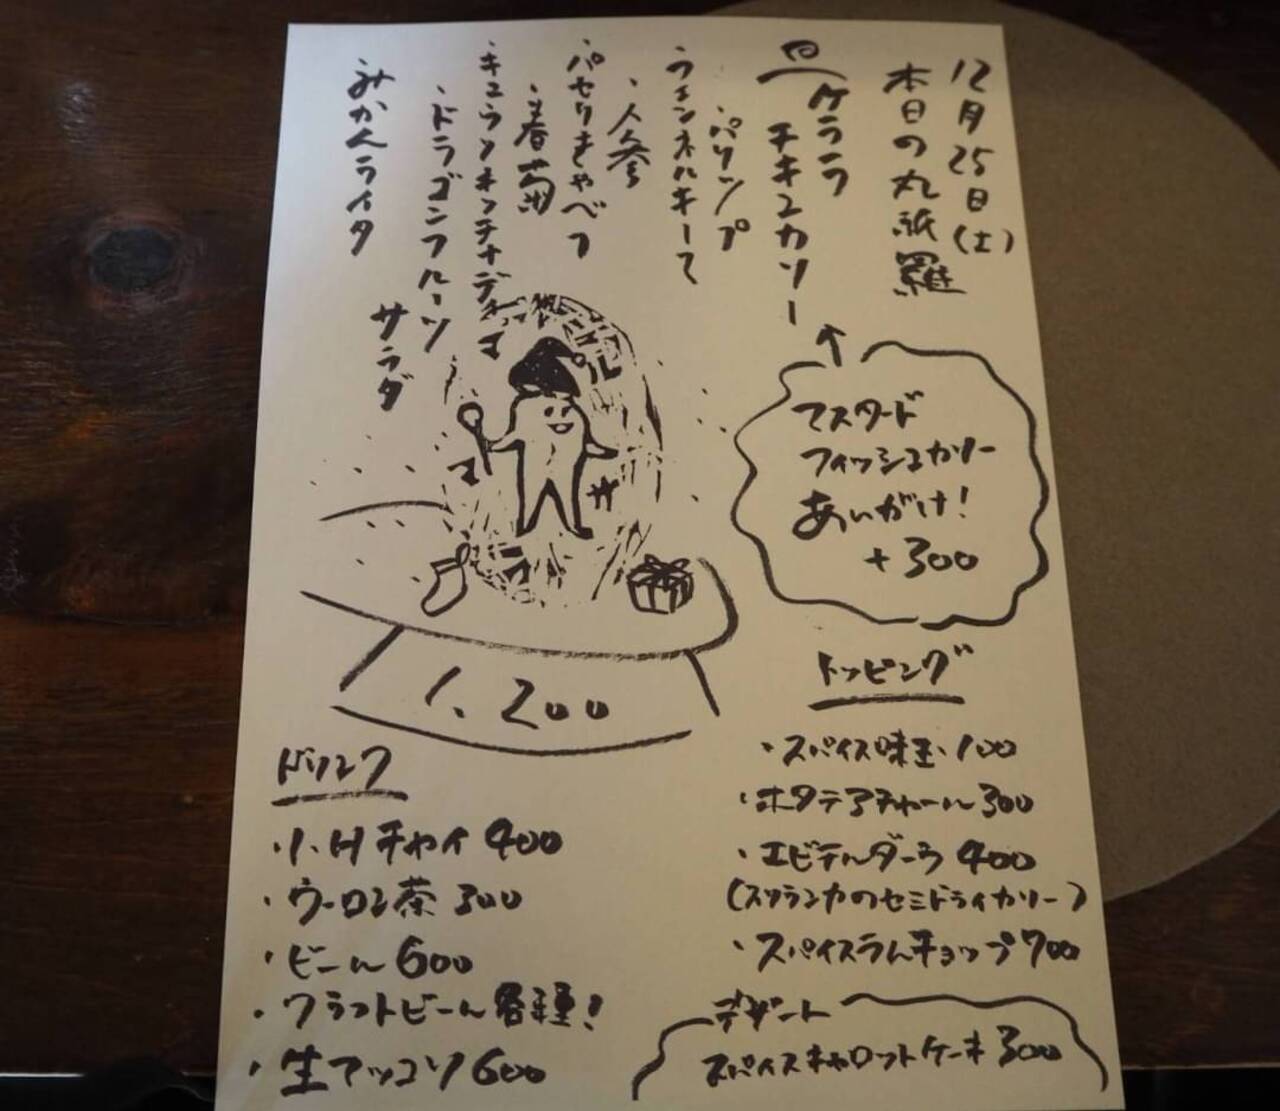 12月25日(土)
本日の丸紙羅
ケララ
チキンカリー
・パリップ
・フェンネルキーマ
・人参
・パセリきゃべつ
・春菊
・キュウリ
・ドラゴンフルーツ
サラダ
みかんライタ
マスタード
フィッシュカリー
あいがけ!
+300
1,200
トッピング
・スパイス味玉 100
・ホタテアチャール 300
・エビテルダーラ 400
(スリランカのセミドライカリー)
・スパイスラムチョップ 700
デザート
スパイスキャロットケーキ 300
ドリンク
・I.Hチャイ 400
・ウーロン茶 300
・ビール 600
・クラフトビール各種!
・生マッコリ 600